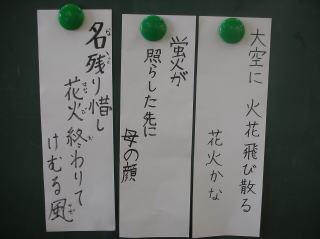 大空に 火花飛び散る
花火かな
蛍火が
照らした先に
母の顔
名残り惜し
花火終わりて
けむる風